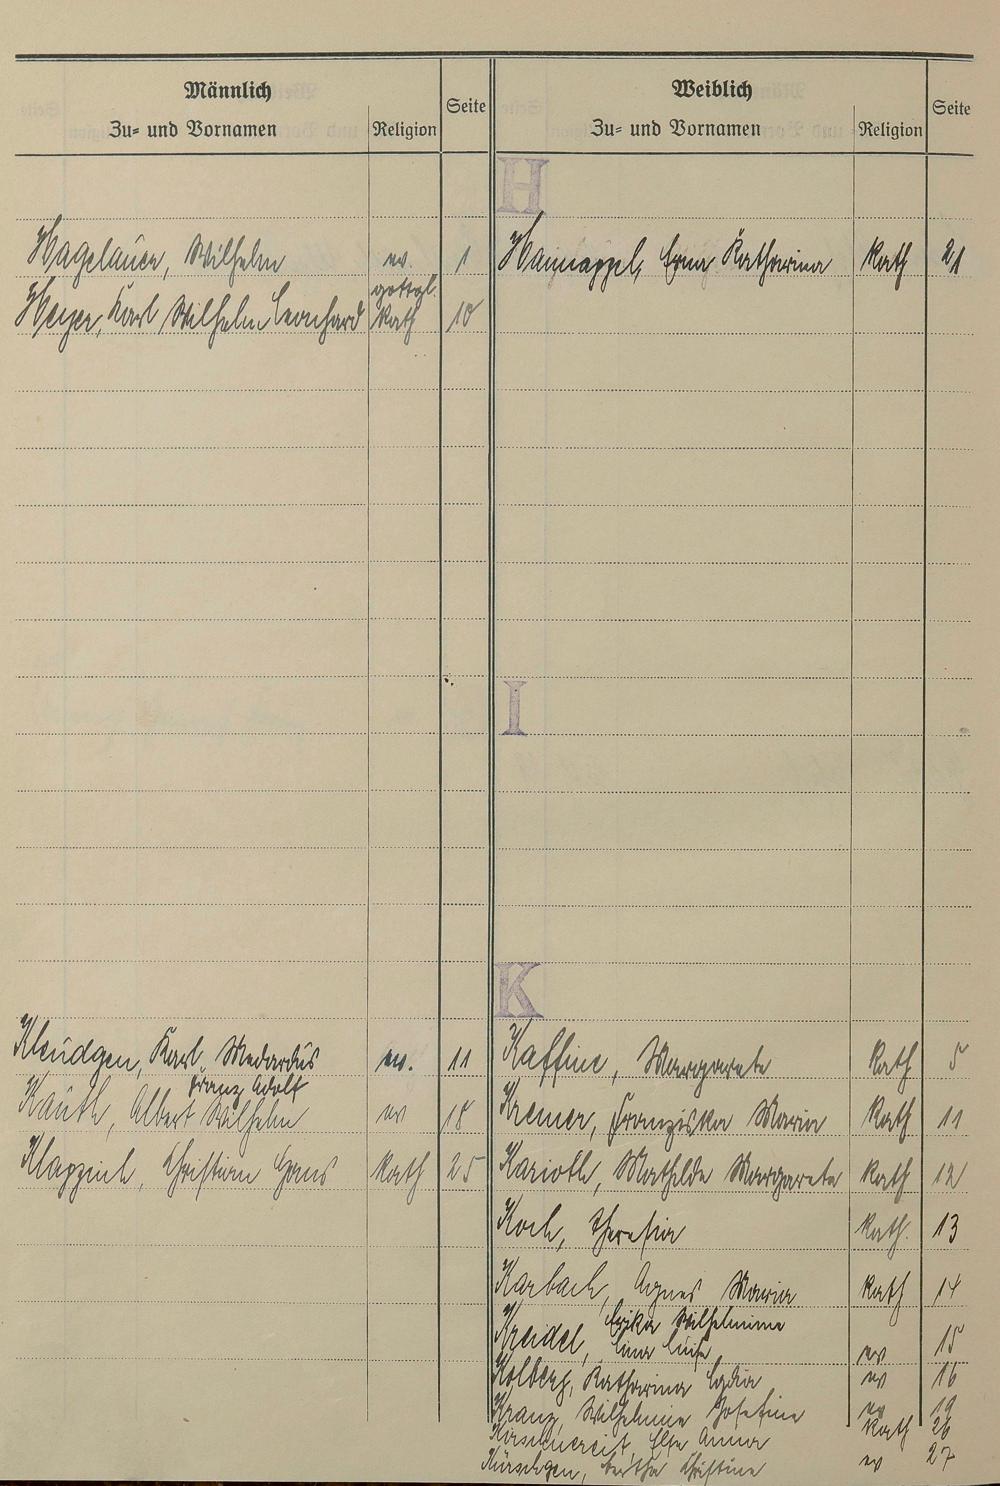 Männlich
Zu- und Vornamen
Religion
Seite
Weiblich
Zu- und Vornamen
Religion
Seite
H
Hagelauer, Wilhelm ev. 1
gottgl.
Heyer, Karl Wilhelm Leonhard kath 10
Hainappel, Erna Katharina kath 21
I
K
Kleudgen, Karl Medardus ev. 11
Franz Adolf
Kauth, Albert Wilhelm ev 18
Klappich, Christian Hans kath 25
Kaffine, Margarete kath 5
Kremer, Franziska Maria kath 11
Karioth, Mathilde Margareta kath 12
Koch, Theresia kath. 13
Karbach, Agnes Maria kath 14
Erika Wilhelmine
Kreidel, Lina Luise ev 15
Kolberg, Katharina Lydia ev 16
Kranz, Wilhelmine Josefine ev 19
Kirschnereit, Else Anna kath 26
Kürschgen, Bertha Christine ev 27